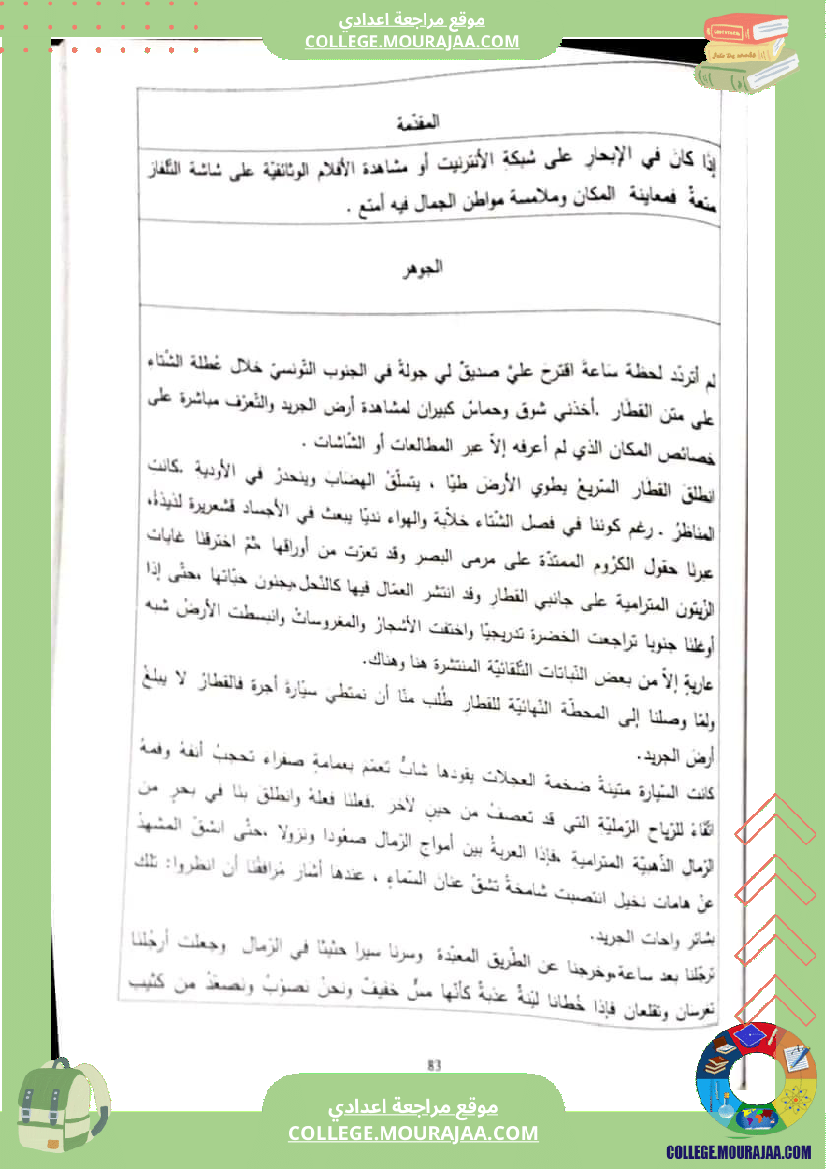 موقع مراجعة اعدادي
COLLEGE.MOURAJAA.COM
المقدّمة
إذَا كانَ في الإبحارِ على شبكةِ الأنترنيت أو مشاهدة الأفلام الوثائقيّة على شاشة التّلفاز
متعةٌ فمعاينة المكان وملامسة مواطن الجمال فيه أمتع .
الجوهر
لم أتردّد لحظة سَاعةَ اقترحَ عليّ صديقٌ لي جولةً في الجنوب التّونسيّ خلال عُطلة الشّتاءِ
على متن القطَار .أخذني شوق وحماسٌ كبيران لمشاهدة أرض الجريد والتّعرّف مباشرة على
خصائص المكان الذي لم أعرفه إلاّ عبر المطالعات أو الشّاشات .
انطلقَ القطَار السّريعُ يطوي الأرضَ طيّا ، يتسلّقُ الهضابَ وينحدرُ في الأوديةِ .كانت
المناظرُ . رغم كوننا في فصل الشّتاء خلاّبة والهواء نديّا يبعث في الأجساد قشعريرة لذيذة،
عبرنا حقول الكرُوم الممتدّة على مرمى البصر وقد تعرّت من أوراقها ،ثمّ اخترقنا غابات
الزّيتون المترامية على جانبي القطارِ وقد انتشر العمّال فيها كالنّحل،يجنون حبّاتها ،حتّى إذا
أوغلنا جنوبا تراجعت الخضرة تدريجيّا واختفت الأشجارُ والمغروساتُ وانبسطت الأرضُ شبه
عاريةٍ إلاّ من بعض النّباتات التّلقائيّة المنتشرة هنا وهناك.
ولمّا وصلنا إلى المحطّة النّهائيّة للقطار طُلب منّا أن نمتطيَ سيّارةَ أجرة فالقطارُ لا يبلغُ
أرضَ الجريد.
كانت السّيارة متينةً ضخمة العجلات يقودها شابٌ تعمّمَ بعمامةٍ صفراءِ تحجبُ أنفهُ وفمهُ
اتّقاءً للرّياح الرّمليّة التي قد تعصفُ من حينٍ لآخرَ .فعلنا فعلهُ وانطلقَ بنا في بحرٍ من
الرّمالِ الذّهبيّة المتراميةِ ،فإذا العربةُ بين أمواج الرّمال صعُودا ونزولا ،حتّى انشقّ المشهدُ
عنْ هامات نخيل انتصبت شامخةً تشقّ عنانَ السّماءِ ، عندها أشار مُرافقُنا أن انظروا: تلك
بشائر واحات الجريد.
ترجّلنا بعد ساعة،وخرجنا عن الطّريق المعبّدة وسرنا سيرا حثيثا في الرّمال وجعلت أرجُلنا
تغرسان وتقلعان فإذا خُطانا ليّنةٌ عذبةٌ كأنّها مسٌّ خفيفٌ ونحنُ نصوّبُ ونصعّدُ من كثيب
83
موقع مراجعة اعدادي
COLLEGE.MOURAJAA.COM
COLLEGE.MOURAJAA.COM